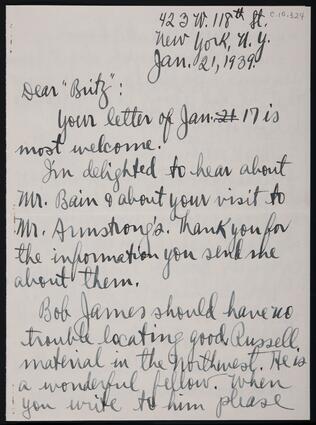 C.10.324
423 W. 118th St.
New York, N.Y.
Jan. 21, 1939.
Dear "Britz":
Your letter of Jan. 21 17 is
most welcome.
I'm delighted to hear about
Mr. Bain & about your visit to
Mr. Armstrong's. Thank you for
the information you send me
about them.
Bob James should have no
trouble locating good Russell
material in the Northwest. He is
a wonderful fellow. When
you write to him please